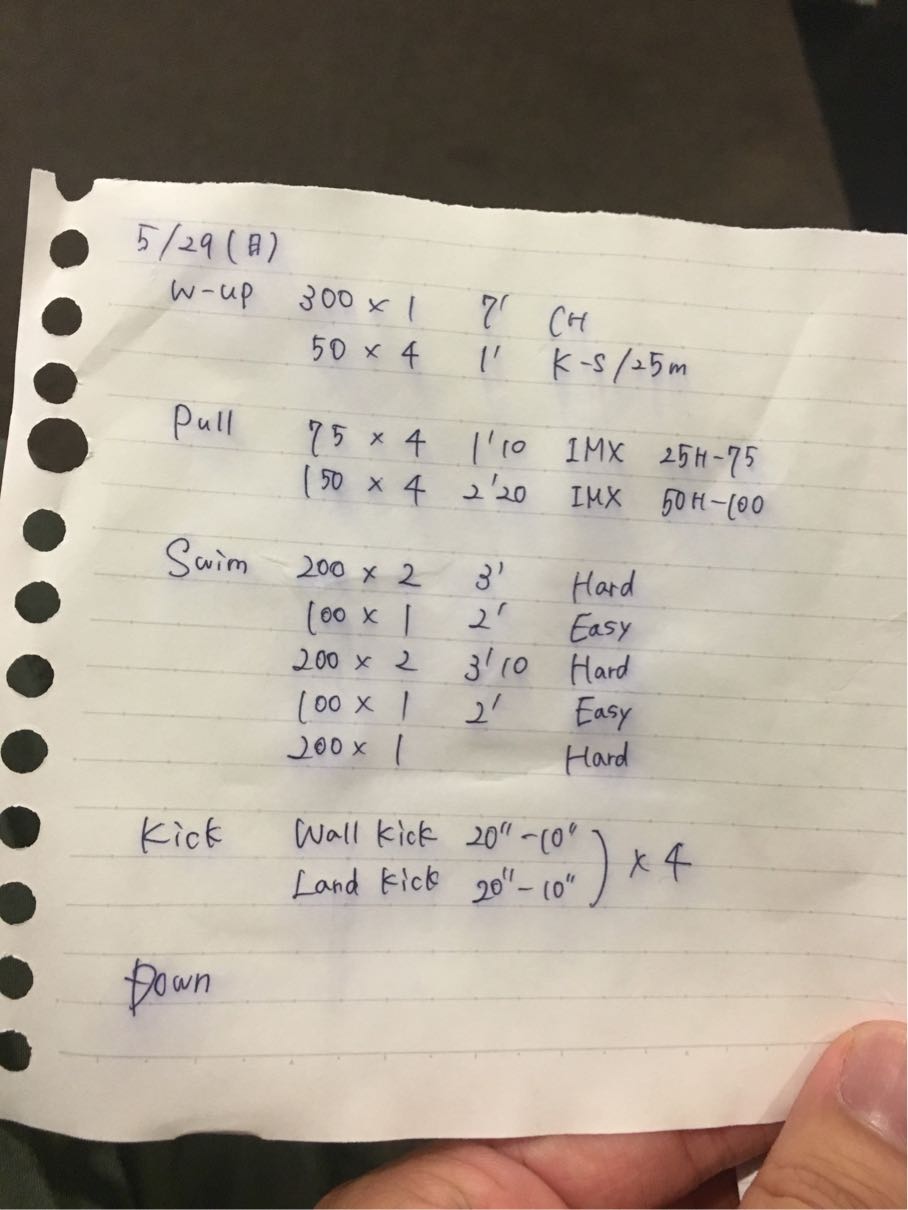 5/29(日)
W-up 300 × 1 7' CH
50 × 4 1' K-S/25m
Pull 75 × 4 1'10 IMX 25H-75
150 × 4 2'20 IMX 50H-100
Swim 200 × 2 3' Hard
100 × 1 2' Easy
200 × 2 3'10 Hard
100 × 1 2' Easy
200 × 1 Hard
Kick Wall kick 20"-10"
Land kick 20"-10" ) × 4
Down